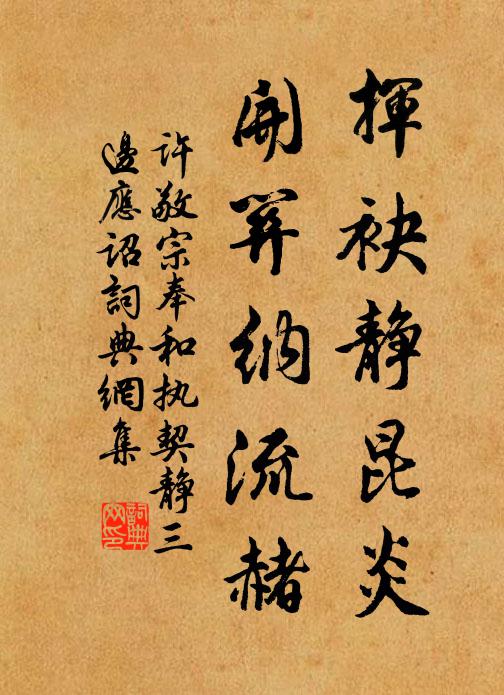 揮袂静昆炎
開關納流赭
許敬宗奉和执契静三
邊應詔詞典網集
詞典
网印